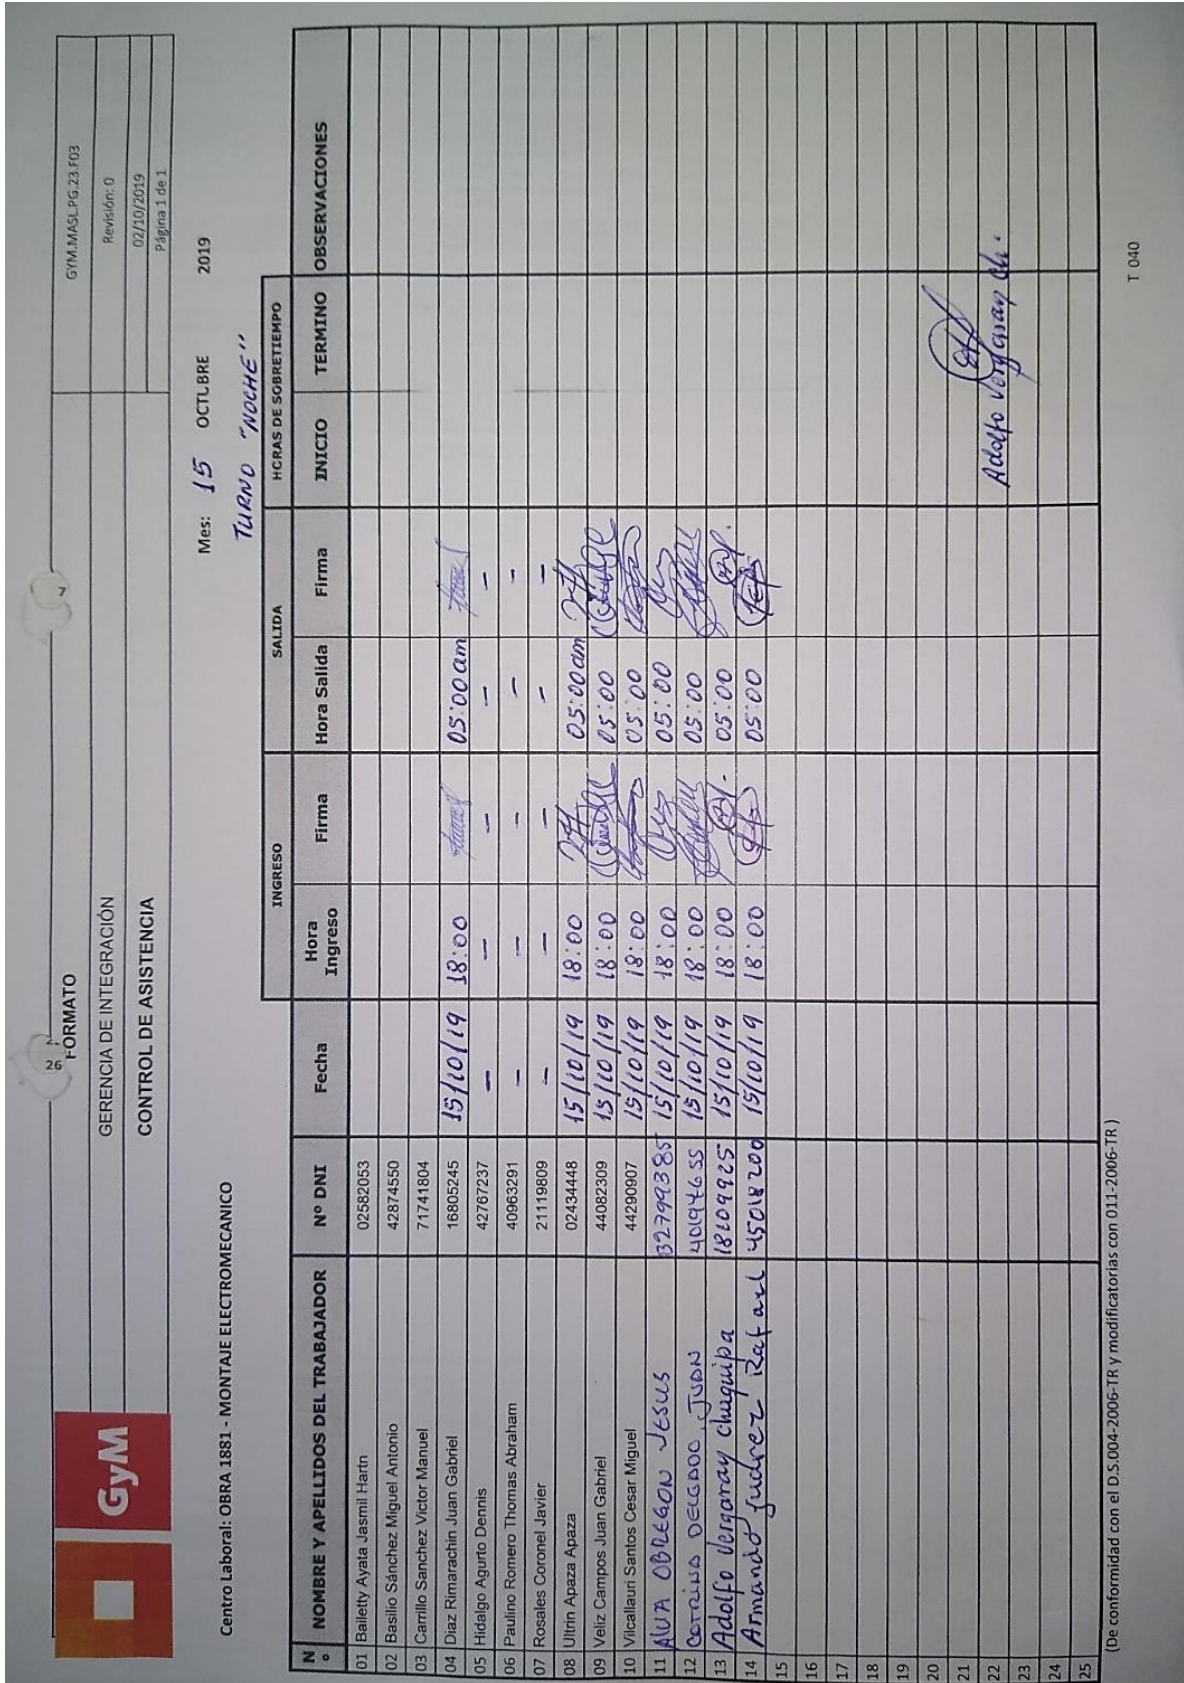 26
7
GyM
FORMATO
GERENCIA DE INTEGRACIÓN
CONTROL DE ASISTENCIA
GYM.MASL.PG.23.F03
Revisión: 0
02/10/2019
Página 1 de 1
Centro Laboral: OBRA 1881 - MONTAJE ELECTROMECANICO
Mes: 15 OCTUBRE 2019
TURNO "NOCHE"
INGRESO SALIDA HORAS DE SOBRETIEMPO
N° NOMBRE Y APELLIDOS DEL TRABAJADOR Nº DNI Fecha Hora Ingreso Firma Hora Salida Firma INICIO TERMINO OBSERVACIONES
01 Bailetty Ayata Jasmil Hartn 02582053
02 Basilio Sánchez Miguel Antonio 42874550
03 Carrillo Sanchez Victor Manuel 71741804
04 Diaz Rimarachin Juan Gabriel 16805245 15/10/19 18:00 05:00am
05 Hidalgo Agurto Dennis 42767237 - - - - -
06 Paulino Romero Thomas Abraham 40963291 - - - - -
07 Rosales Coronel Javier 21119809 - - - - -
08 Ultrin Apaza Apaza 02434448 15/10/19 18:00 05:00am
09 Veliz Campos Juan Gabriel 44082309 15/10/19 18:00 05:00
10 Vilcallauri Santos Cesar Miguel 44290907 15/10/19 18:00 05:00
11 ALVA OBREGON JESUS 32799385 15/10/19 18:00 05:00
12 COTRINA DELGADO, JUAN 40194655 15/10/19 18:00 05:00
13 Adolfo Vergaray chuquipa 18109925 15/10/19 18:00 05:00
14 Armando Juárez Rafael 45018200 15/10/19 18:00 05:00
15
16
17
18
19
20
21
22 Adolfo Vergaray Ch.
23
24
25
(De conformidad con el D.S.004-2006-TR y modificatorias con 011-2006-TR )
T 040